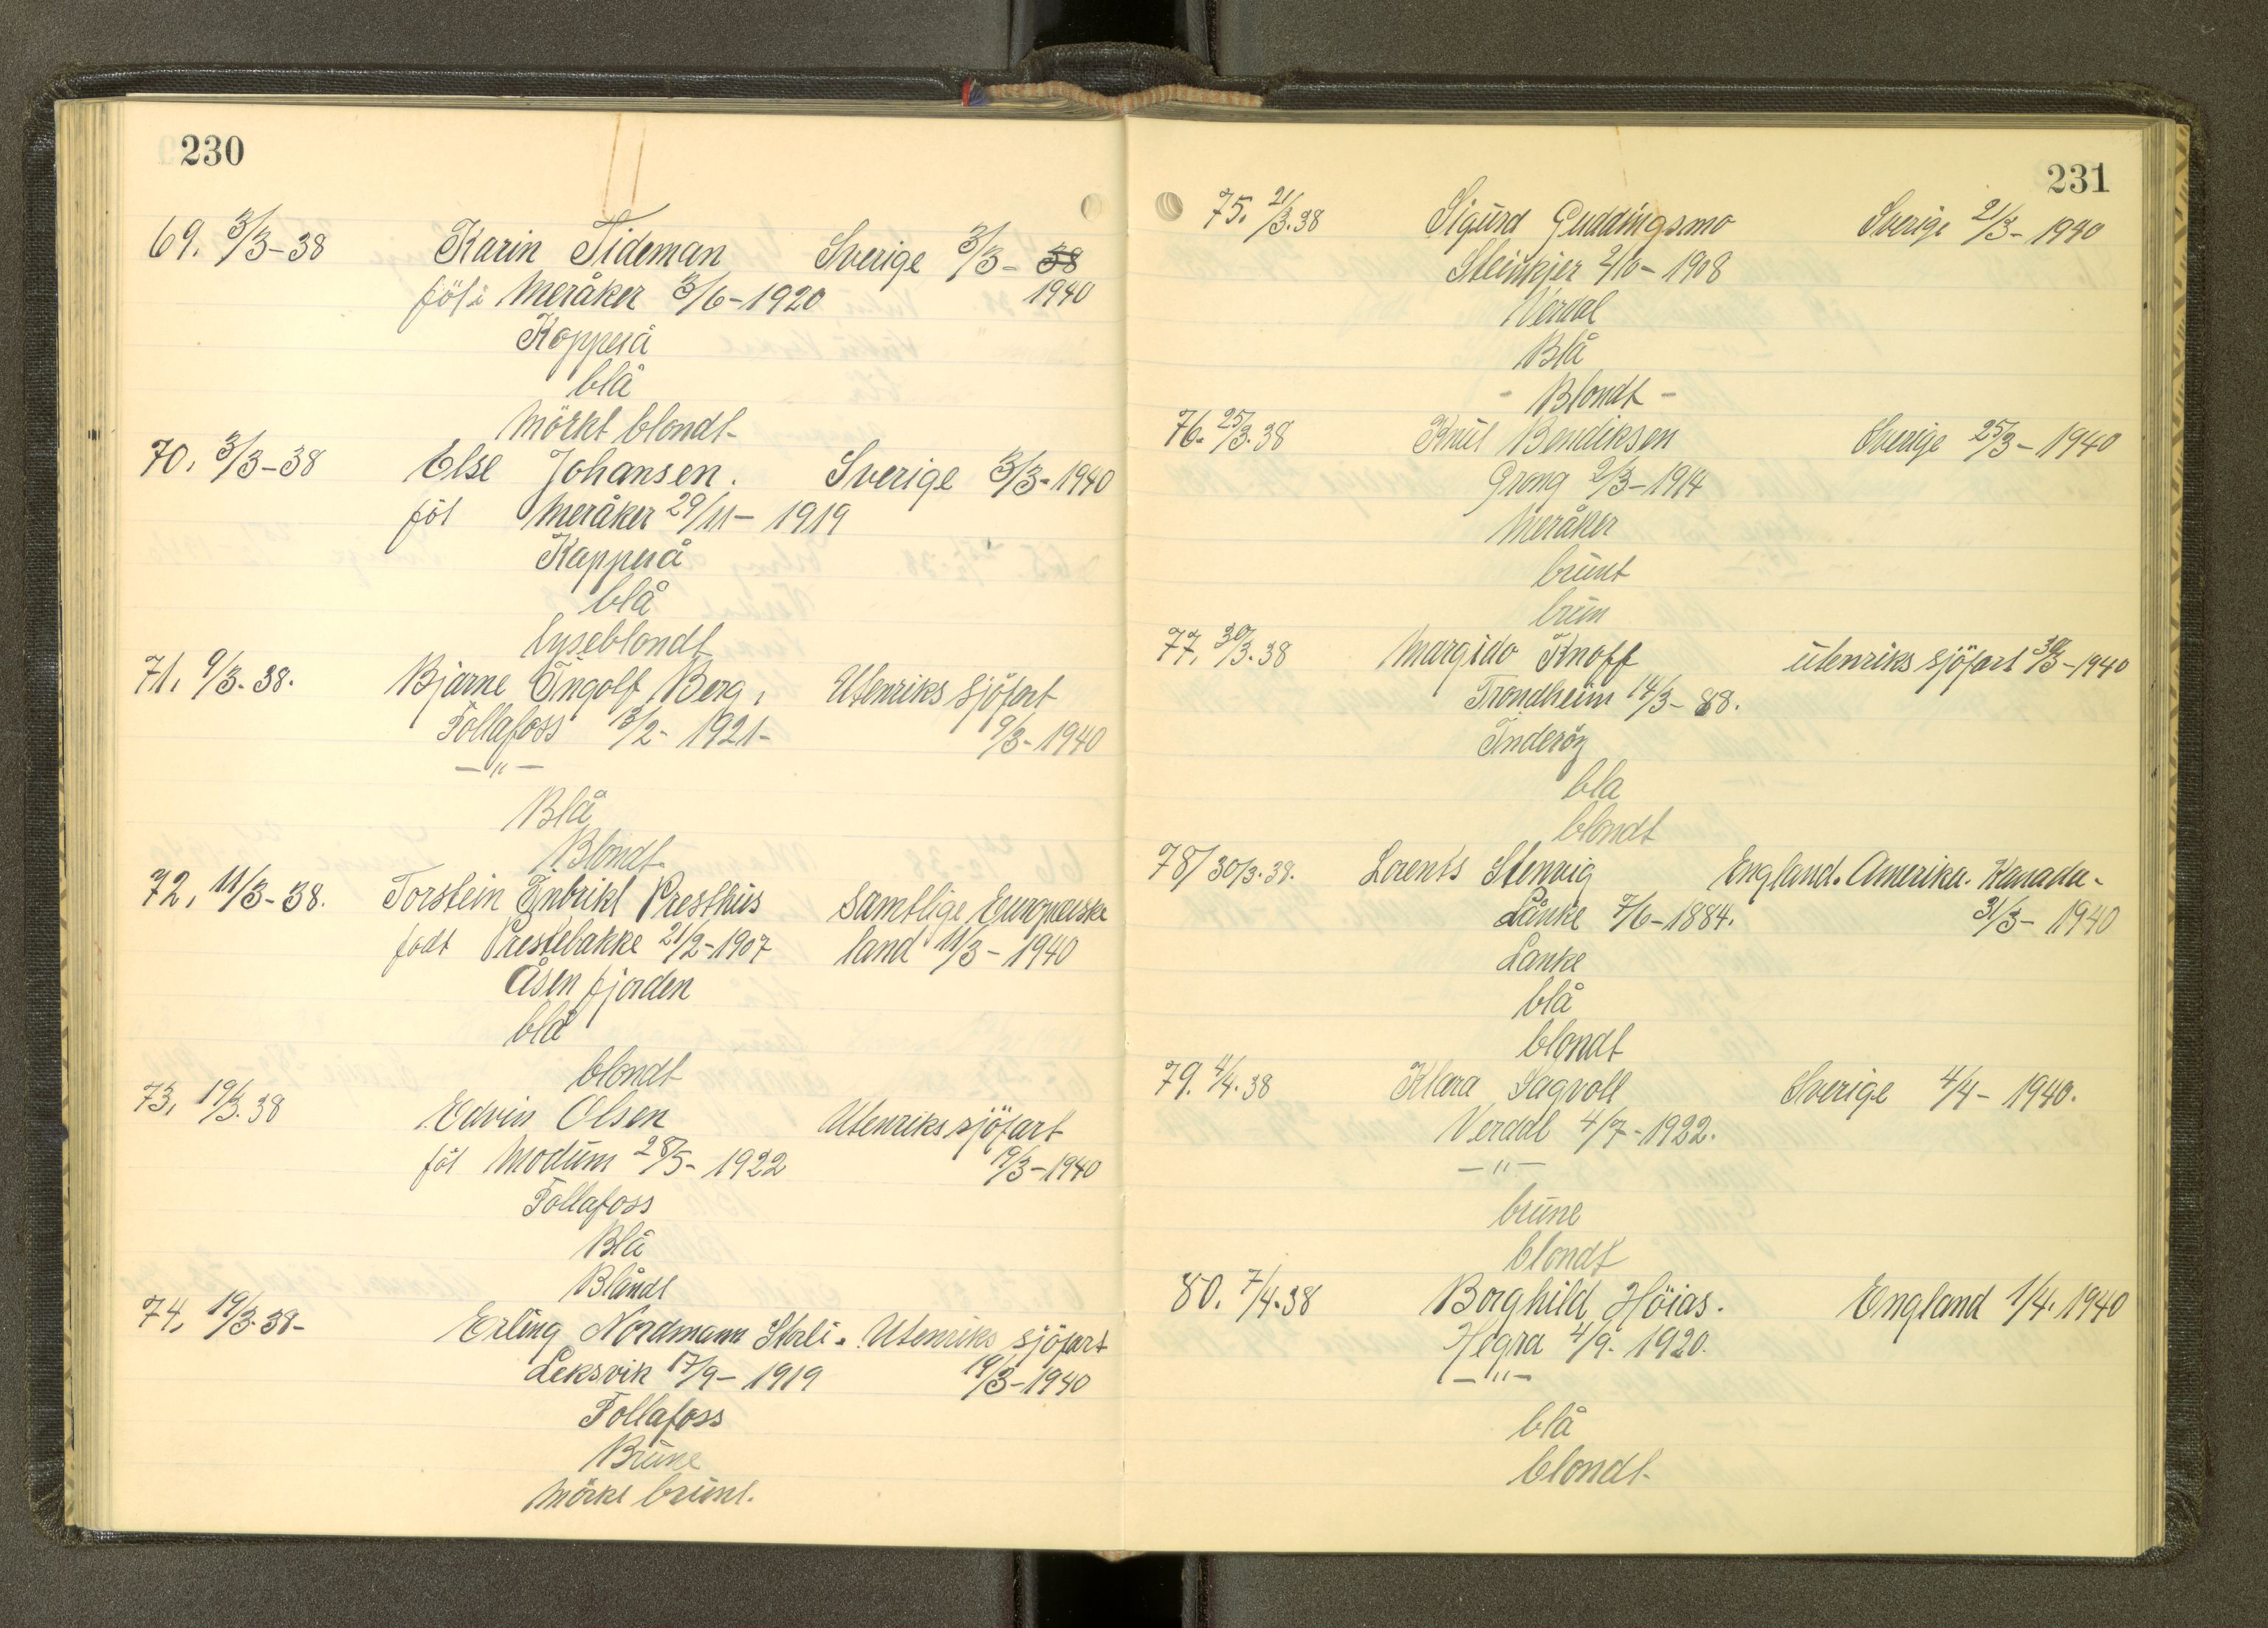 230
69. 3/3-38 Karin Tideman Sverige 3/3- 38
föt i Meråker 3/6-1920 1940
Kopperå
blå
Mörkt blondt-
70, 3/3-38 Else Johansen. Sverige 3/3-1940
föt Meråker 29/11- 1919
Kopperå
blå
lyseblondt
71, 9/3.38. Bjarne Ingolf Berg, Utenriks sjöfart
Follafoss 13/2- 1921- 9/3-1940
-"-
Blå
Blondt.
72, 11/3-38. Torstein Inbrikt Presthus Samtlige Europæiske
födt Prestebakke 21/2-1907 land 11/3-1940
Åsen fjorden
blå
blondt
73, 19/3.38 Edvin Olsen Utenriks sjöfart
föt Modum 28/5- 1922 19/3-1940
Follafoss
Blå
Blåndt
74, 19/3.38- Erling Nordmann Utenriks sjöfart
Leksvik 17/9- 1919 19/3-1940
Follafoss
Brune
Mörke brunt.
231
75. 21/3.38 Sigurd Guddingsmo Sverige 21/3- 1940
Steinkjer 2/10- 1908
Verdal
Blå
- Blondt -
76. 25/3.38 Knut Bendiksen Sverige 25/3- 1940
Grong 2/3-1914
Meråker
brunt
brun
77, 30/3.38 Margido Knoff utenriks sjöfart 30/3-1940
Trondheim 14/3- 88.
Inderöy
bla
blondt
78/ 30/3.38. Lorents Stenvig England. Amerika. Kanada-
Lånke 7/6-1884. 31/3- 1940
Lanke
blå
blondt
79. 4/4.38 Klara Sagvoll Sverige 4/4- 1940.
Verdal 4/7-1922.
-"-
brune
blondt
80. 7/4.38 Borghild Höiås. England 1/4.1940
Hegra 4/9. 1920.
-"-
blå
blondt-